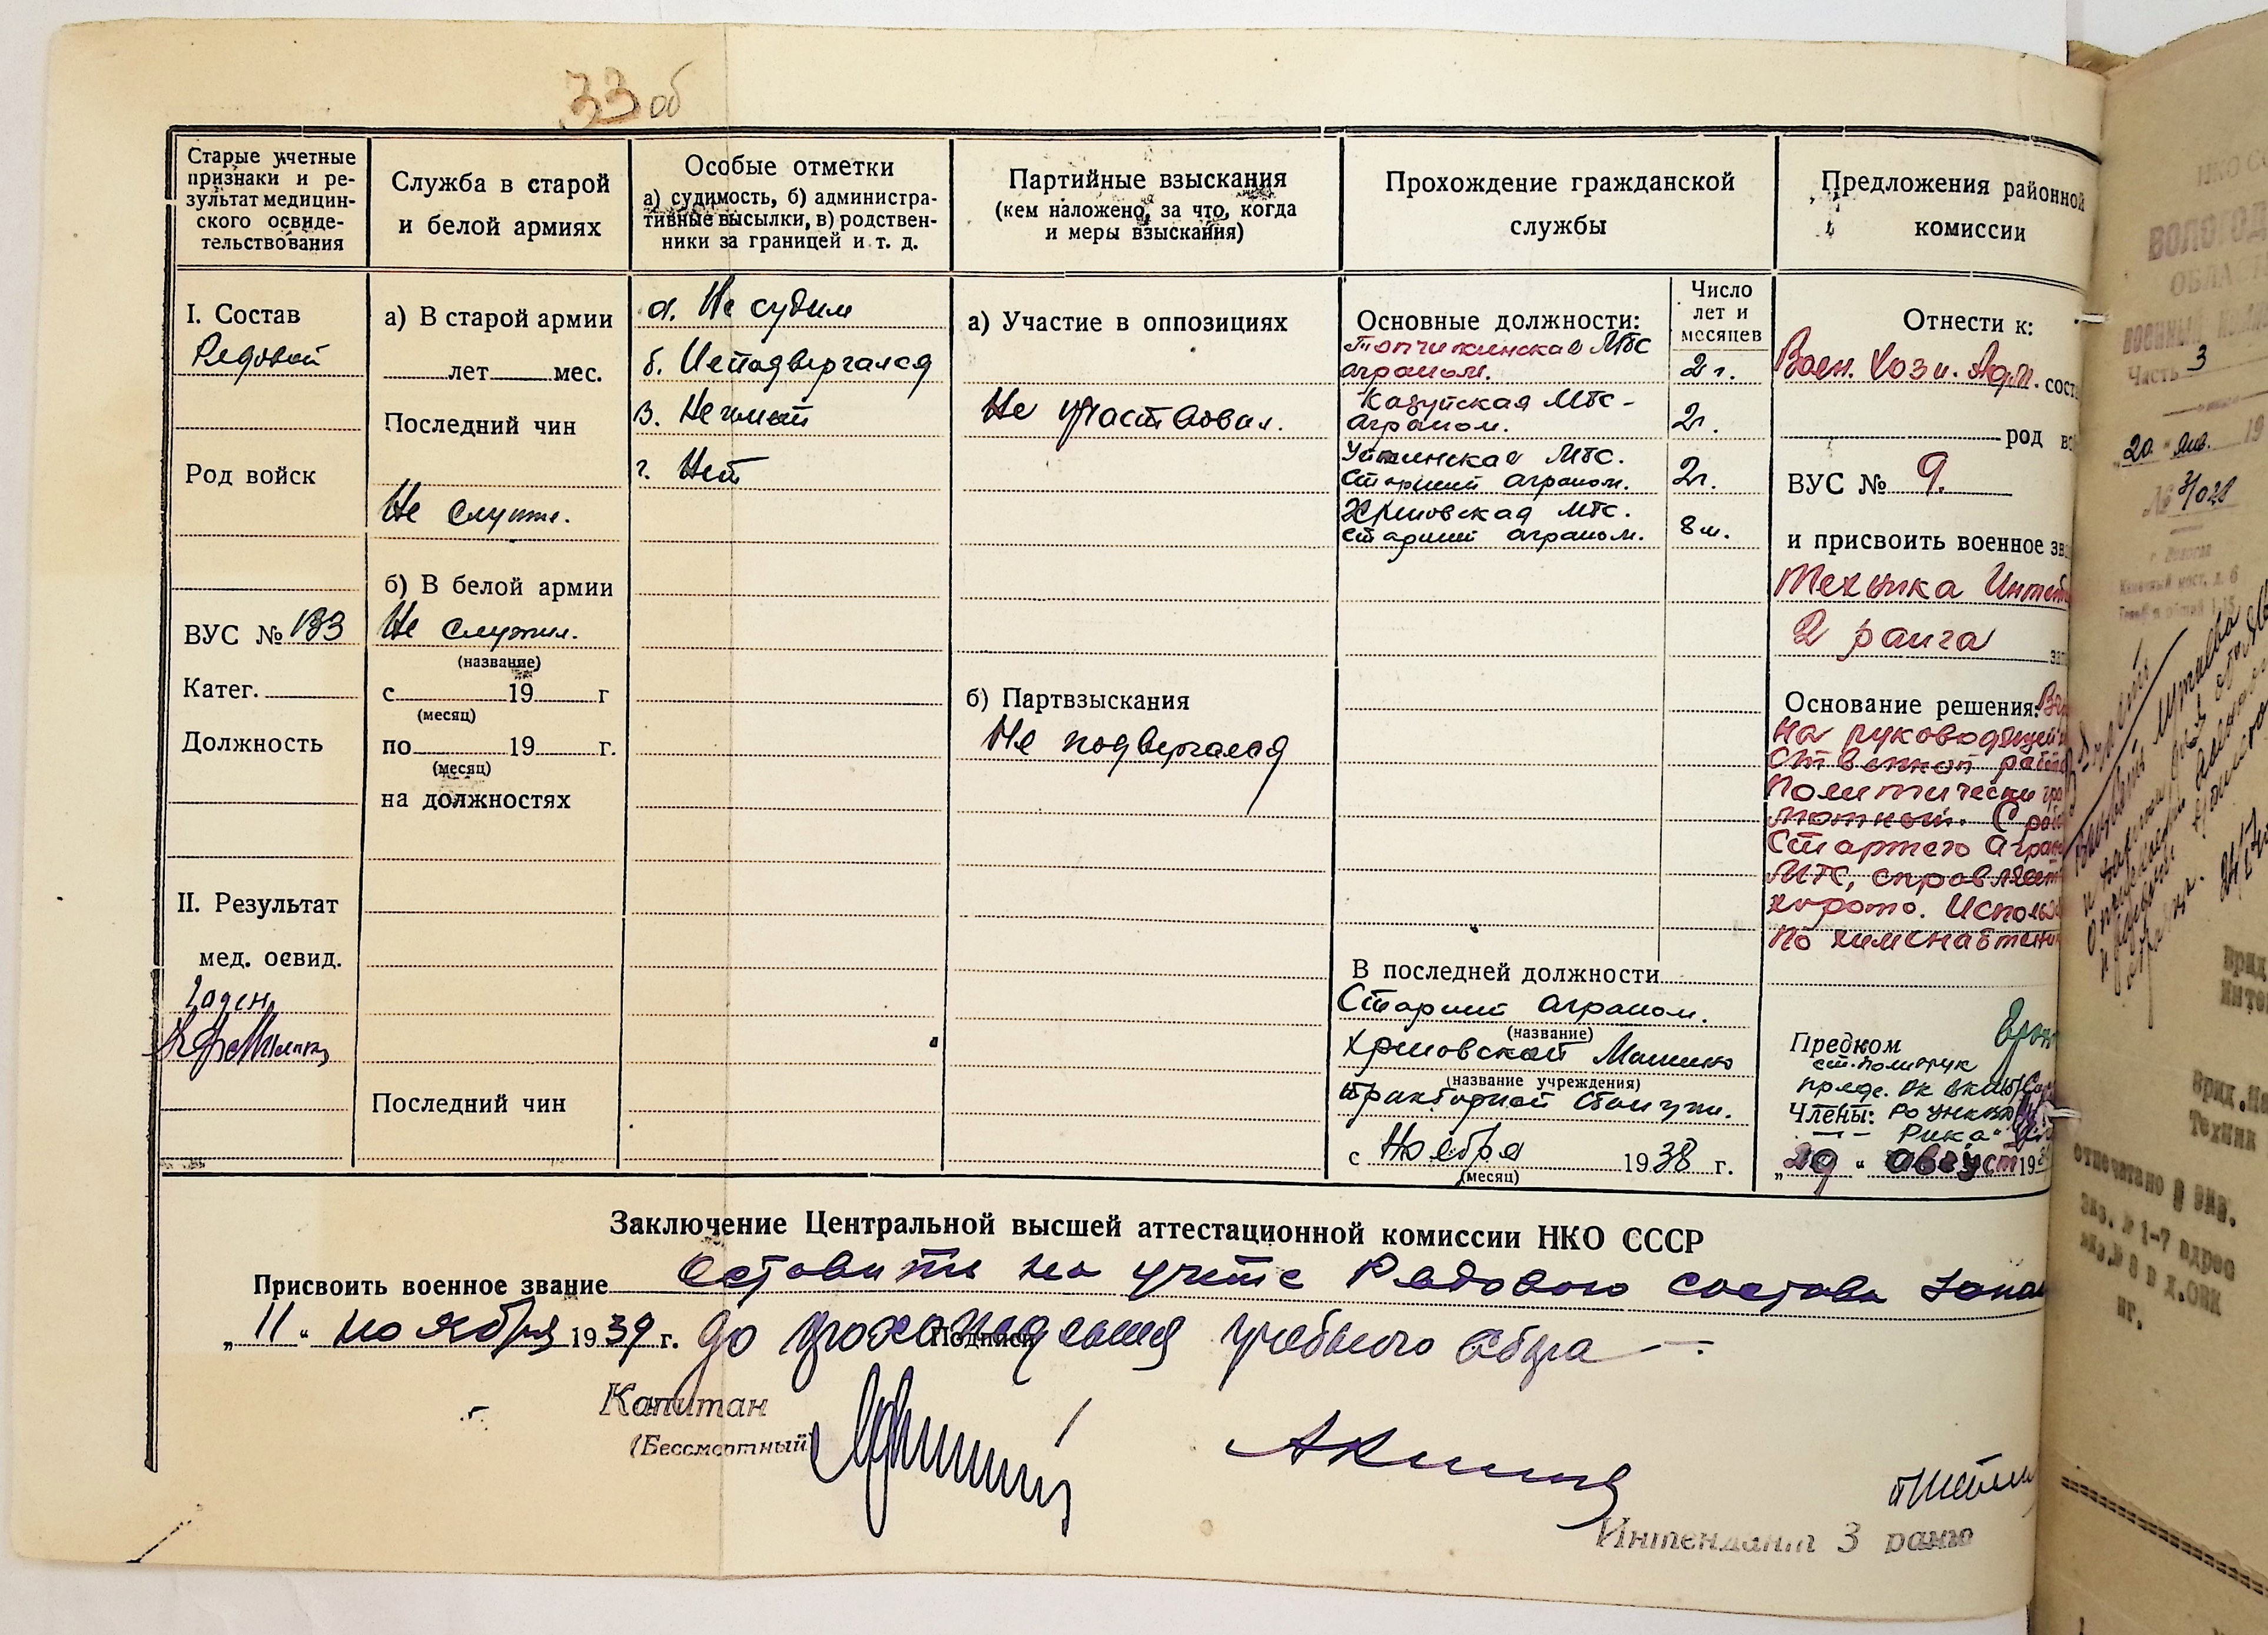 33 об
Старые учетные
признаки и ре-
зультат медицин-
ского освиде-
тельствования
Служба в старой
и белой армиях
Особые отметки
а) судимость, б) администра-
тивные высылки, в) родствен-
ники за границей и т. д.
Партийные взыскания
(кем наложено, за что, когда
и меры взыскания)
Прохождение гражданской
службы
Предложения районной
комиссии
I. Состав
Рядовой
Род войск
ВУС № 133
Катег.
Должность
II. Результат
мед. освид.
Годен
а) В старой армии
лет мес.
Последний чин
Не служил.
б) В белой армии
Не служил.
(название)
с 19 г
(месяц)
по 19 г.
(месяц)
на должностях
Последний чин
а. Не судим
б. Не подвергался
в. Не имеет
г. Нет
а) Участие в оппозициях
Не участвовал.
б) Партвзыскания
Не подвергался
Основные должности:
Число
лет и
месяцев
Топчихинская МТС
агроном. 2 г.
МТС -
агроном. 2г.
МТС.
Старший агроном. 2г.
МТС.
старший агроном. 8 м.
В последней должности
Старший агроном.
(название)
Машино
(название учреждения)
тракторной станции.
с Ноября 1938 г.
(месяц)
Отнести к:
Воен. Хоз и. Адм. сост
род во
ВУС № 9.
и присвоить военное зв
Техника Интенд
2 ранга
зап
Основание решения:
На руководящей
ственной работ
Политически гра
мотный. С раб
Старшего Агроно
МТС, справляет
хорошо. Использ
по химснабжени
Предком
ст. политрук
Члены:
Рика
„29" август 193
Заключение Центральной высшей аттестационной комиссии НКО СССР
Присвоить военное звание Оставить на учете Рядового состава запа
„11" ноября 1939 г. до прохождения учебного сбора
Подписи
Капитан
(Бессмертный)
Интендант 3 ранга
НКО СС
ВОЛОГОД
ОБЛАСТ
ВОЕННЫЙ
Часть 3
„20" янв. 19
№ 3/028
г. Вологда
Врид
Инте
Врид.На
Техник
отпечатано 8 экз.
экз. № 1-7 адрес
экз.№ 8 в д.ОВК
нг.